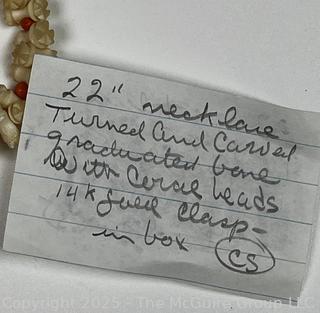 22" necklace
Turned and Carved
graduated bone
With Coral beads
14k gold Clasp-
in box
CS
Copyright 2025 - The McGuire Group LLC